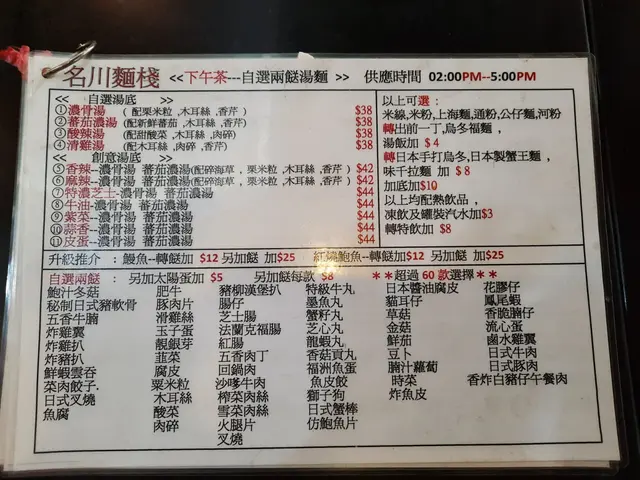 名川麵棧 <<下午茶---自選兩餸湯麵 >> 供應時間 02:00PM--5:00PM
<< 自選湯底 >>
①濃骨湯 ( 配栗米粒 ,木耳絲 ,香芹 ) $38
②蕃茄濃湯 (配新鮮蕃茄 ,木耳絲 ,香芹 ) $38
③酸辣湯 (配甜酸菜 ,木耳絲 ,肉碎) $38
④滑雞湯 (配木耳絲 ,肉碎 ,香芹 ) $38
<< 創意湯底 >>
⑤香辣--濃骨湯 蕃茄濃湯(配碎海草 , 栗米粒 ,木耳絲 ,香芹 ) $42
⑥麻辣--濃骨湯 蕃茄濃湯(配碎海草 , 栗米粒 ,木耳絲 ,香芹 ) $42
⑦特濃芝士-濃骨湯 蕃茄濃湯 $44
⑧牛油-濃骨湯 蕃茄濃湯 $44
⑨紫菜--濃骨湯 蕃茄濃湯 $44
⑩蒜香--濃骨湯 蕃茄濃湯 $44
⑪皮蛋--濃骨湯 蕃茄濃湯 $44
以上可選 :
米線,米粉,上海麵,通粉,公仔麵,河粉
轉出前一丁,烏冬福麵 ,
湯飯加 $ 4
轉日本手打烏冬,日本製蟹王麵 ,
味千拉麵 加 $ 8
加底加$10
以上均配熱飲品 ,
凍飲及罐裝汽水加$3
轉特飲加 $8
升級推介 : 鰻魚--轉餸加 $12 另加餸 加$25 紅燒鮑魚--轉餸加$12 另加餸 加$25
自選兩餸 : 另加太陽蛋加 $5 另加餸每款 $8 **超過 60 款選擇**
鮑汁冬菇
秘制日式豬軟骨
五香牛腩
炸雞翼
炸雞扒
炸豬扒
鮮蝦雲吞
菜肉餃子.
日式叉燒
魚腐
肥牛
豚肉片
滑雞絲
玉子蛋
靚銀芽
韮菜
腐皮
粟米粒
木耳絲
酸菜
肉碎
豬柳漢堡扒
腸仔
芝士腸
法蘭克福腸
紅腸
五香肉丁
回鍋肉
沙嗲牛肉
榨菜肉絲
雪菜肉絲
火腿片
叉燒
特級牛丸
墨魚丸
蟹籽丸
芝心丸
龍蝦丸
香菇貢丸
福洲魚蛋
魚皮餃
獅子狗
日式蟹棒
仿鮑魚片
日本醬油腐皮
貓耳仔
草菇
金菇
鮮茄
豆卜
腩汁蘿蔔
時菜
炸魚皮
花膠仔
鳳尾蝦
香脆腩仔
流心蛋
鹵水雞翼
日式牛肉
日式豚肉
香炸白豬仔午餐肉